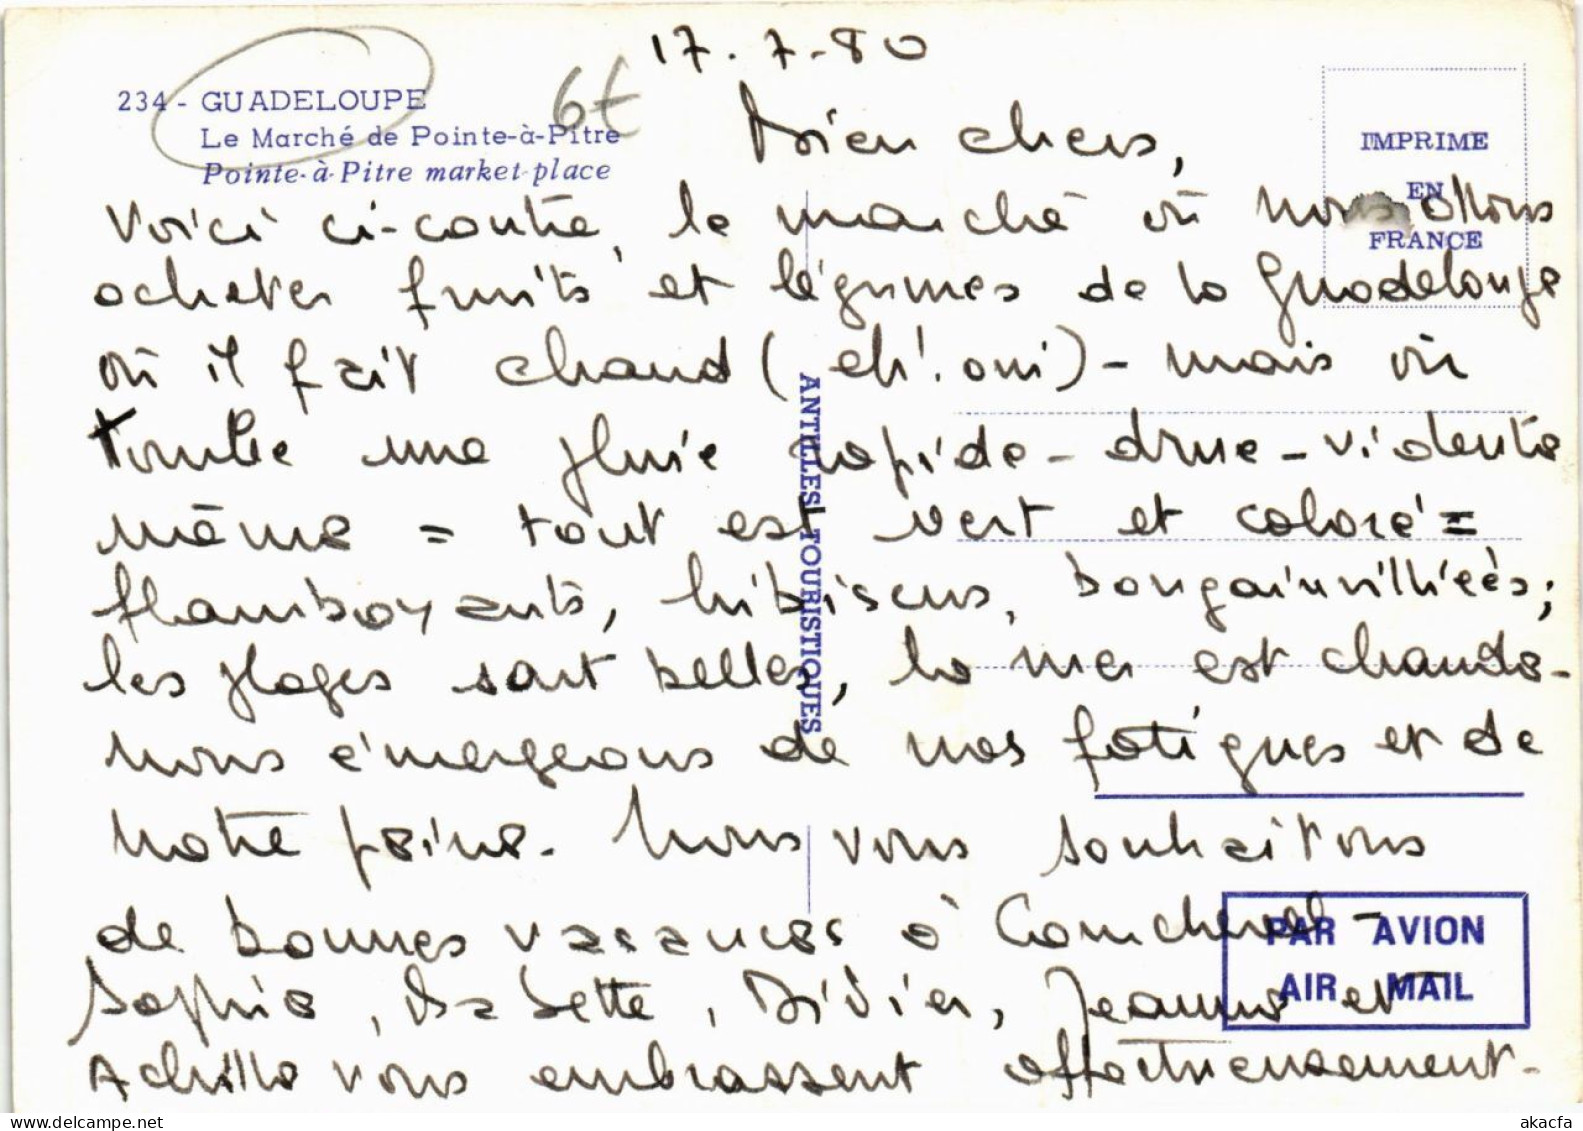 17.7.80
234 - GUADELOUPE
Le Marché de Pointe-à-Pitre
Pointe-à-Pitre market-place
6€
IMPRIME
EN
FRANCE
Bien chers,
Voici ci-contre, le marché où nous allons
acheter fruits et légumes de la Guadeloupe
où il fait chaud (eh! oui) - mais où
tombe une pluie rapide - drue - violente
même = tout est vert et coloré =
flamboyants, hibiscus, bougainvilliées;
les plages sont belles, la mer est chaude -
nous émergeons de nos fatigues et de
notre peine. Nous vous souhaitons
de bonnes vacances à Courchevel -
Sophie, Babette, Didier, Jeanne et
Achille vous embrassent affectueusement -
ANTILLES TOURISTIQUES
PAR AVION
AIR MAIL
www.delcampe.net
akacfa